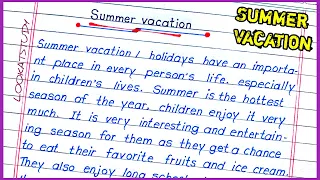 Summer vacation
SUMMER
VACATION
LOOKATSTUDY
Summer vacation / holidays have an importa-
nt place in every person's life, especially
in children's lives. Summer is the hottest
season of the year. children enjoy it very
much. It is very interesting and entertain-
ing season for them as they get a chance
to eat their favorite fruits and ice cream.
They also enjoy long